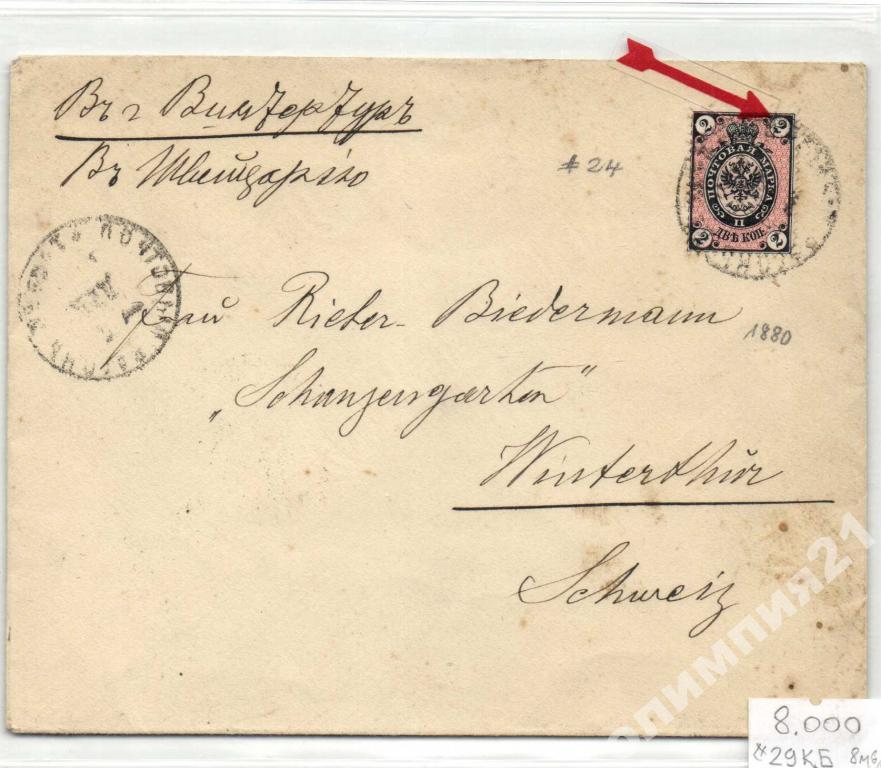 Въ г Винтертуръ
Въ Швейцарiю
#24
2 2
ПОЧТОВАЯ МАРКА
II
ДВѢ КОП.
2 2
ПОЧТОВЫЙ ВАГОНЪ
Frau Rieter-Biedermann
1880
„Schanzengarten"
Winterthur
Schweiz
олимпия21
8.000
*29КБ